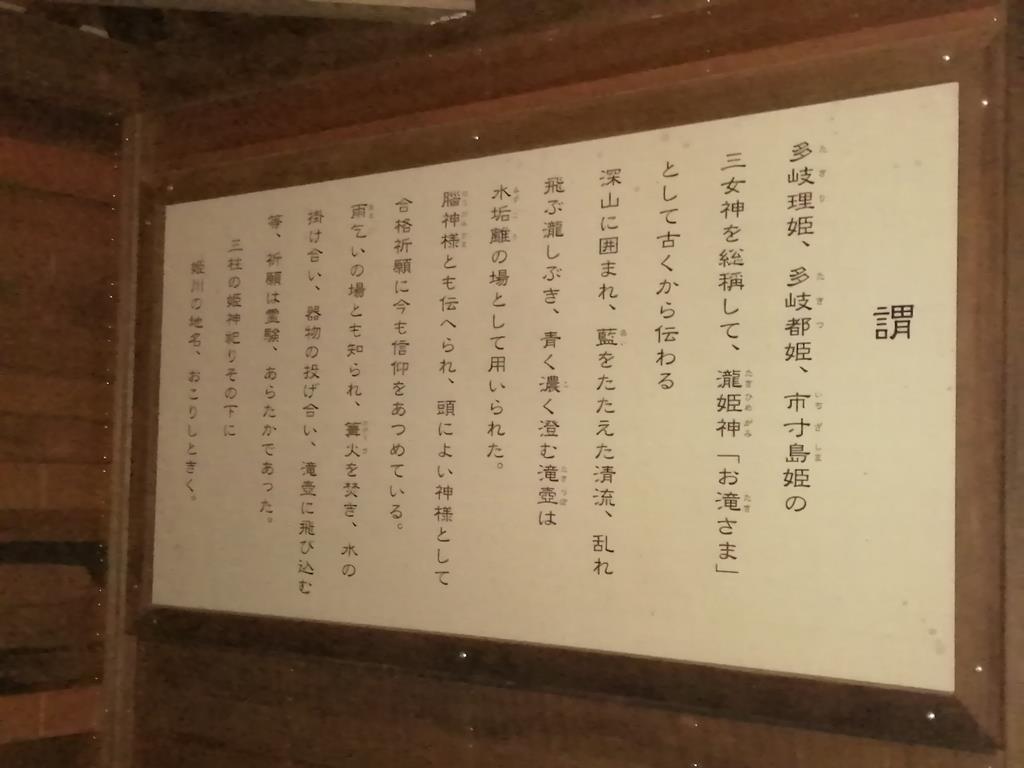 謂
多岐理姫、多岐都姫、市寸島姫の
三女神を総稱して、瀧姫神「お滝さま」
として古くから伝わる
深山に囲まれ、藍をたたえた清流、乱れ
飛ぶ瀧しぶき、青く濃く澄む滝壺は
水垢離の場として用いられた。
脳神様とも伝へられ、頭によい神様として
合格祈願に今も信仰をあつめている。
雨乞いの場とも知られ、篝火を焚き、水の
掛け合い、器物の投げ合い、滝壺に飛び込む
等、祈願は霊験、あらたかであった。
三柱の姫神祀りその下に
姫川の地名、おこりしときく。